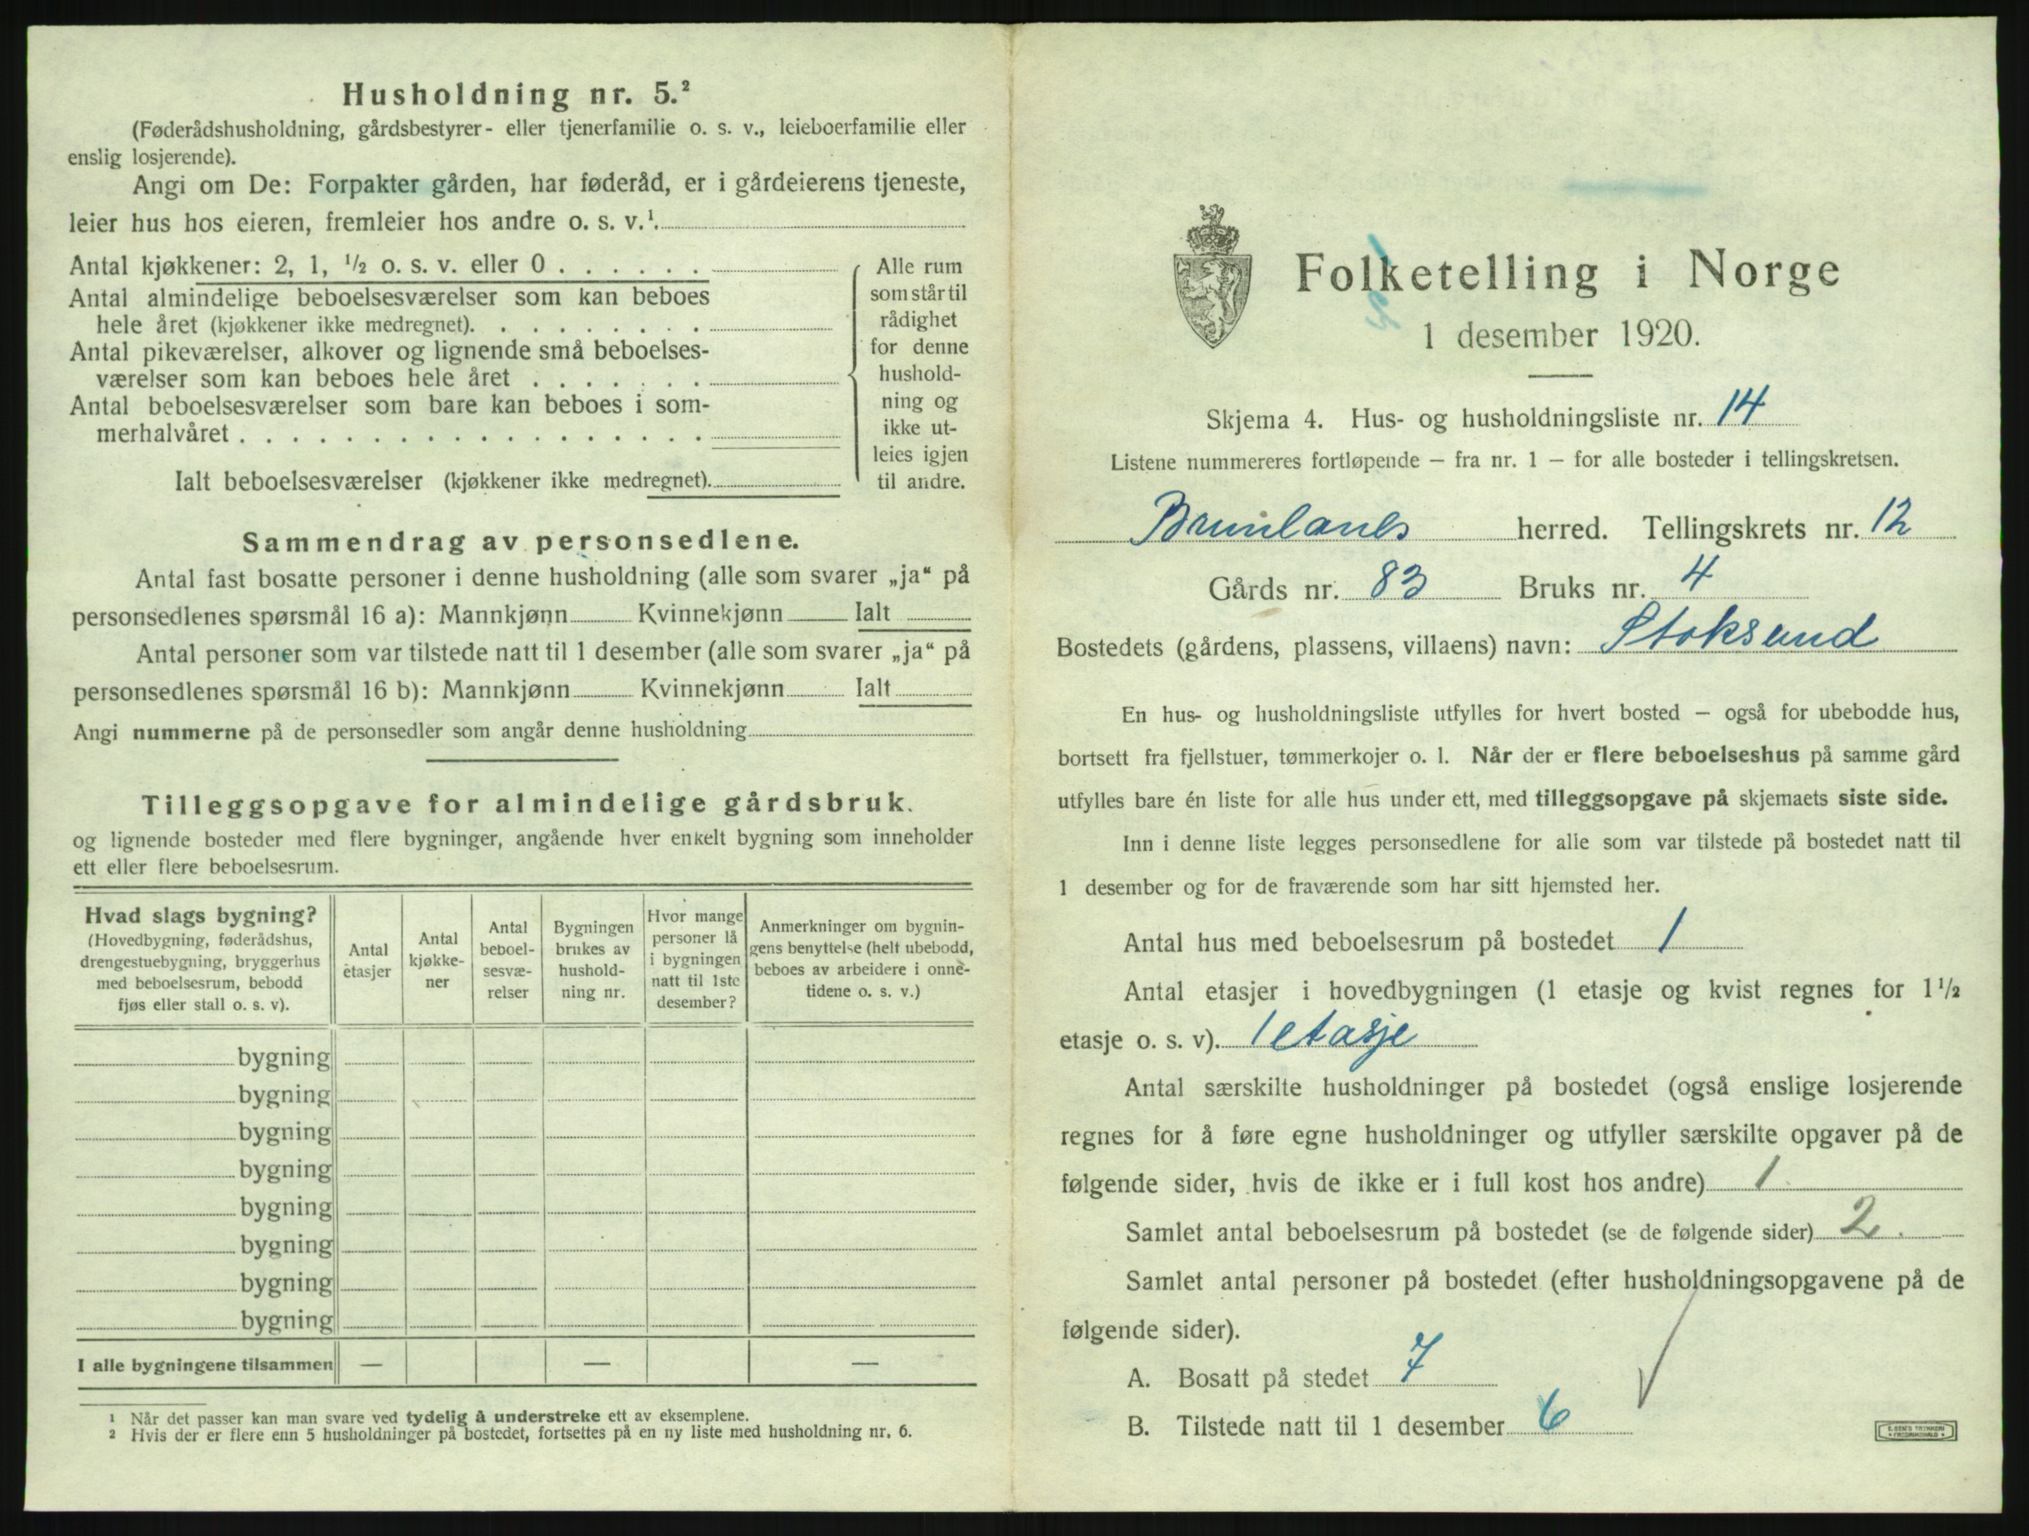 Husholdning nr. 5.²
(Føderådshusholdning, gårdsbestyrer- eller tjenerfamilie o. s. v., leieboerfamilie eller
enslig losjerende).
Angi om De: Forpakter gården, har føderåd, er i gårdeierens tjeneste,
leier hus hos eieren, fremleier hos andre o. s. v.¹.
Antal kjøkkener: 2, 1, ½ o. s. v. eller 0 . . . . . .
Antal almindelige beboelsesværelser som kan beboes
hele året (kjøkkener ikke medregnet). . . . . . . . .
Antal pikeværelser, alkover og lignende små beboelses-
værelser som kan beboes hele året . . . . . . .
Antal beboelsesværelser som bare kan beboes i som-
merhalvåret . . . . . . . . . . . . . . . . . .
Ialt beboelsesværelser (kjøkkener ikke medregnet).
Alle rum
som står til
rådighet
for denne
hushold-
ning og
ikke ut-
leies igjen
til andre.
Sammendrag av personsedlene.
Antal fast bosatte personer i denne husholdning (alle som svarer „ja“ på
personsedlenes spørsmål 16 a): Mannkjønn Kvinnekjønn Ialt
Antal personer som var tilstede natt til 1 desember (alle som svarer „ja“ på
personsedlenes spørsmål 16 b): Mannkjønn Kvinnekjønn Ialt
Angi nummerne på de personsedler som angår denne husholdning
Tilleggsopgave for almindelige gårdsbruk.
og lignende bosteder med flere bygninger, angående hver enkelt bygning som inneholder
ett eller flere beboelsesrum.
Hvad slags bygning?
(Hovedbygning, føderådshus,
drengestuebygning, bryggerhus
med beboelsesrum, bebodd
fjøs eller stall o. s. v).
Antal
etasjer
Antal
kjøkke-
ner
Antal
beboel-
sesvæ-
relser
Bygningen
brukes av
hushold-
ning nr.
Hvor mange
personer lå
i bygningen
natt til 1ste
desember?
Anmerkninger om bygnin-
gens benyttelse (helt ubebodd,
beboes av arbeidere i onne-
tidene o. s. v.)
bygning
bygning
bygning
bygning
bygning
bygning
bygning
bygning
I alle bygningene tilsammen — — —
¹ Når det passer kan man svare ved tydelig å understreke ett av eksemplene.
² Hvis der er flere enn 5 husholdninger på bostedet, fortsettes på en ny liste med husholdning nr. 6.
Folketelling i Norge
1 desember 1920.
Skjema 4. Hus- og husholdningsliste nr. 14
Listene nummereres fortløpende – fra nr. 1 – for alle bosteder i tellingskretsen.
Brunlanes herred. Tellingskrets nr. 12
Gårds nr. 83 Bruks nr. 4
Bostedets (gårdens, plassens, villaens) navn: Stoksund
En hus- og husholdningsliste utfylles for hvert bosted – også for ubebodde hus,
bortsett fra fjellstuer, tømmerkojer o. l. Når der er flere beboelseshus på samme gård
utfylles bare én liste for alle hus under ett, med tilleggsopgave på skjemaets siste side.
Inn i denne liste legges personsedlene for alle som var tilstede på bostedet natt til
1 desember og for de fraværende som har sitt hjemsted her.
Antal hus med beboelsesrum på bostedet 1
Antal etasjer i hovedbygningen (1 etasje og kvist regnes for 1½
etasje o. s. v). 1 etasje
Antal særskilte husholdninger på bostedet (også enslige losjerende
regnes for å føre egne husholdninger og utfyller særskilte opgaver på de
følgende sider, hvis de ikke er i full kost hos andre) 1
Samlet antal beboelsesrum på bostedet (se de følgende sider) 2
Samlet antal personer på bostedet (efter husholdningsopgavene på de
følgende sider).
A. Bosatt på stedet 7
B. Tilstede natt til 1 desember 6